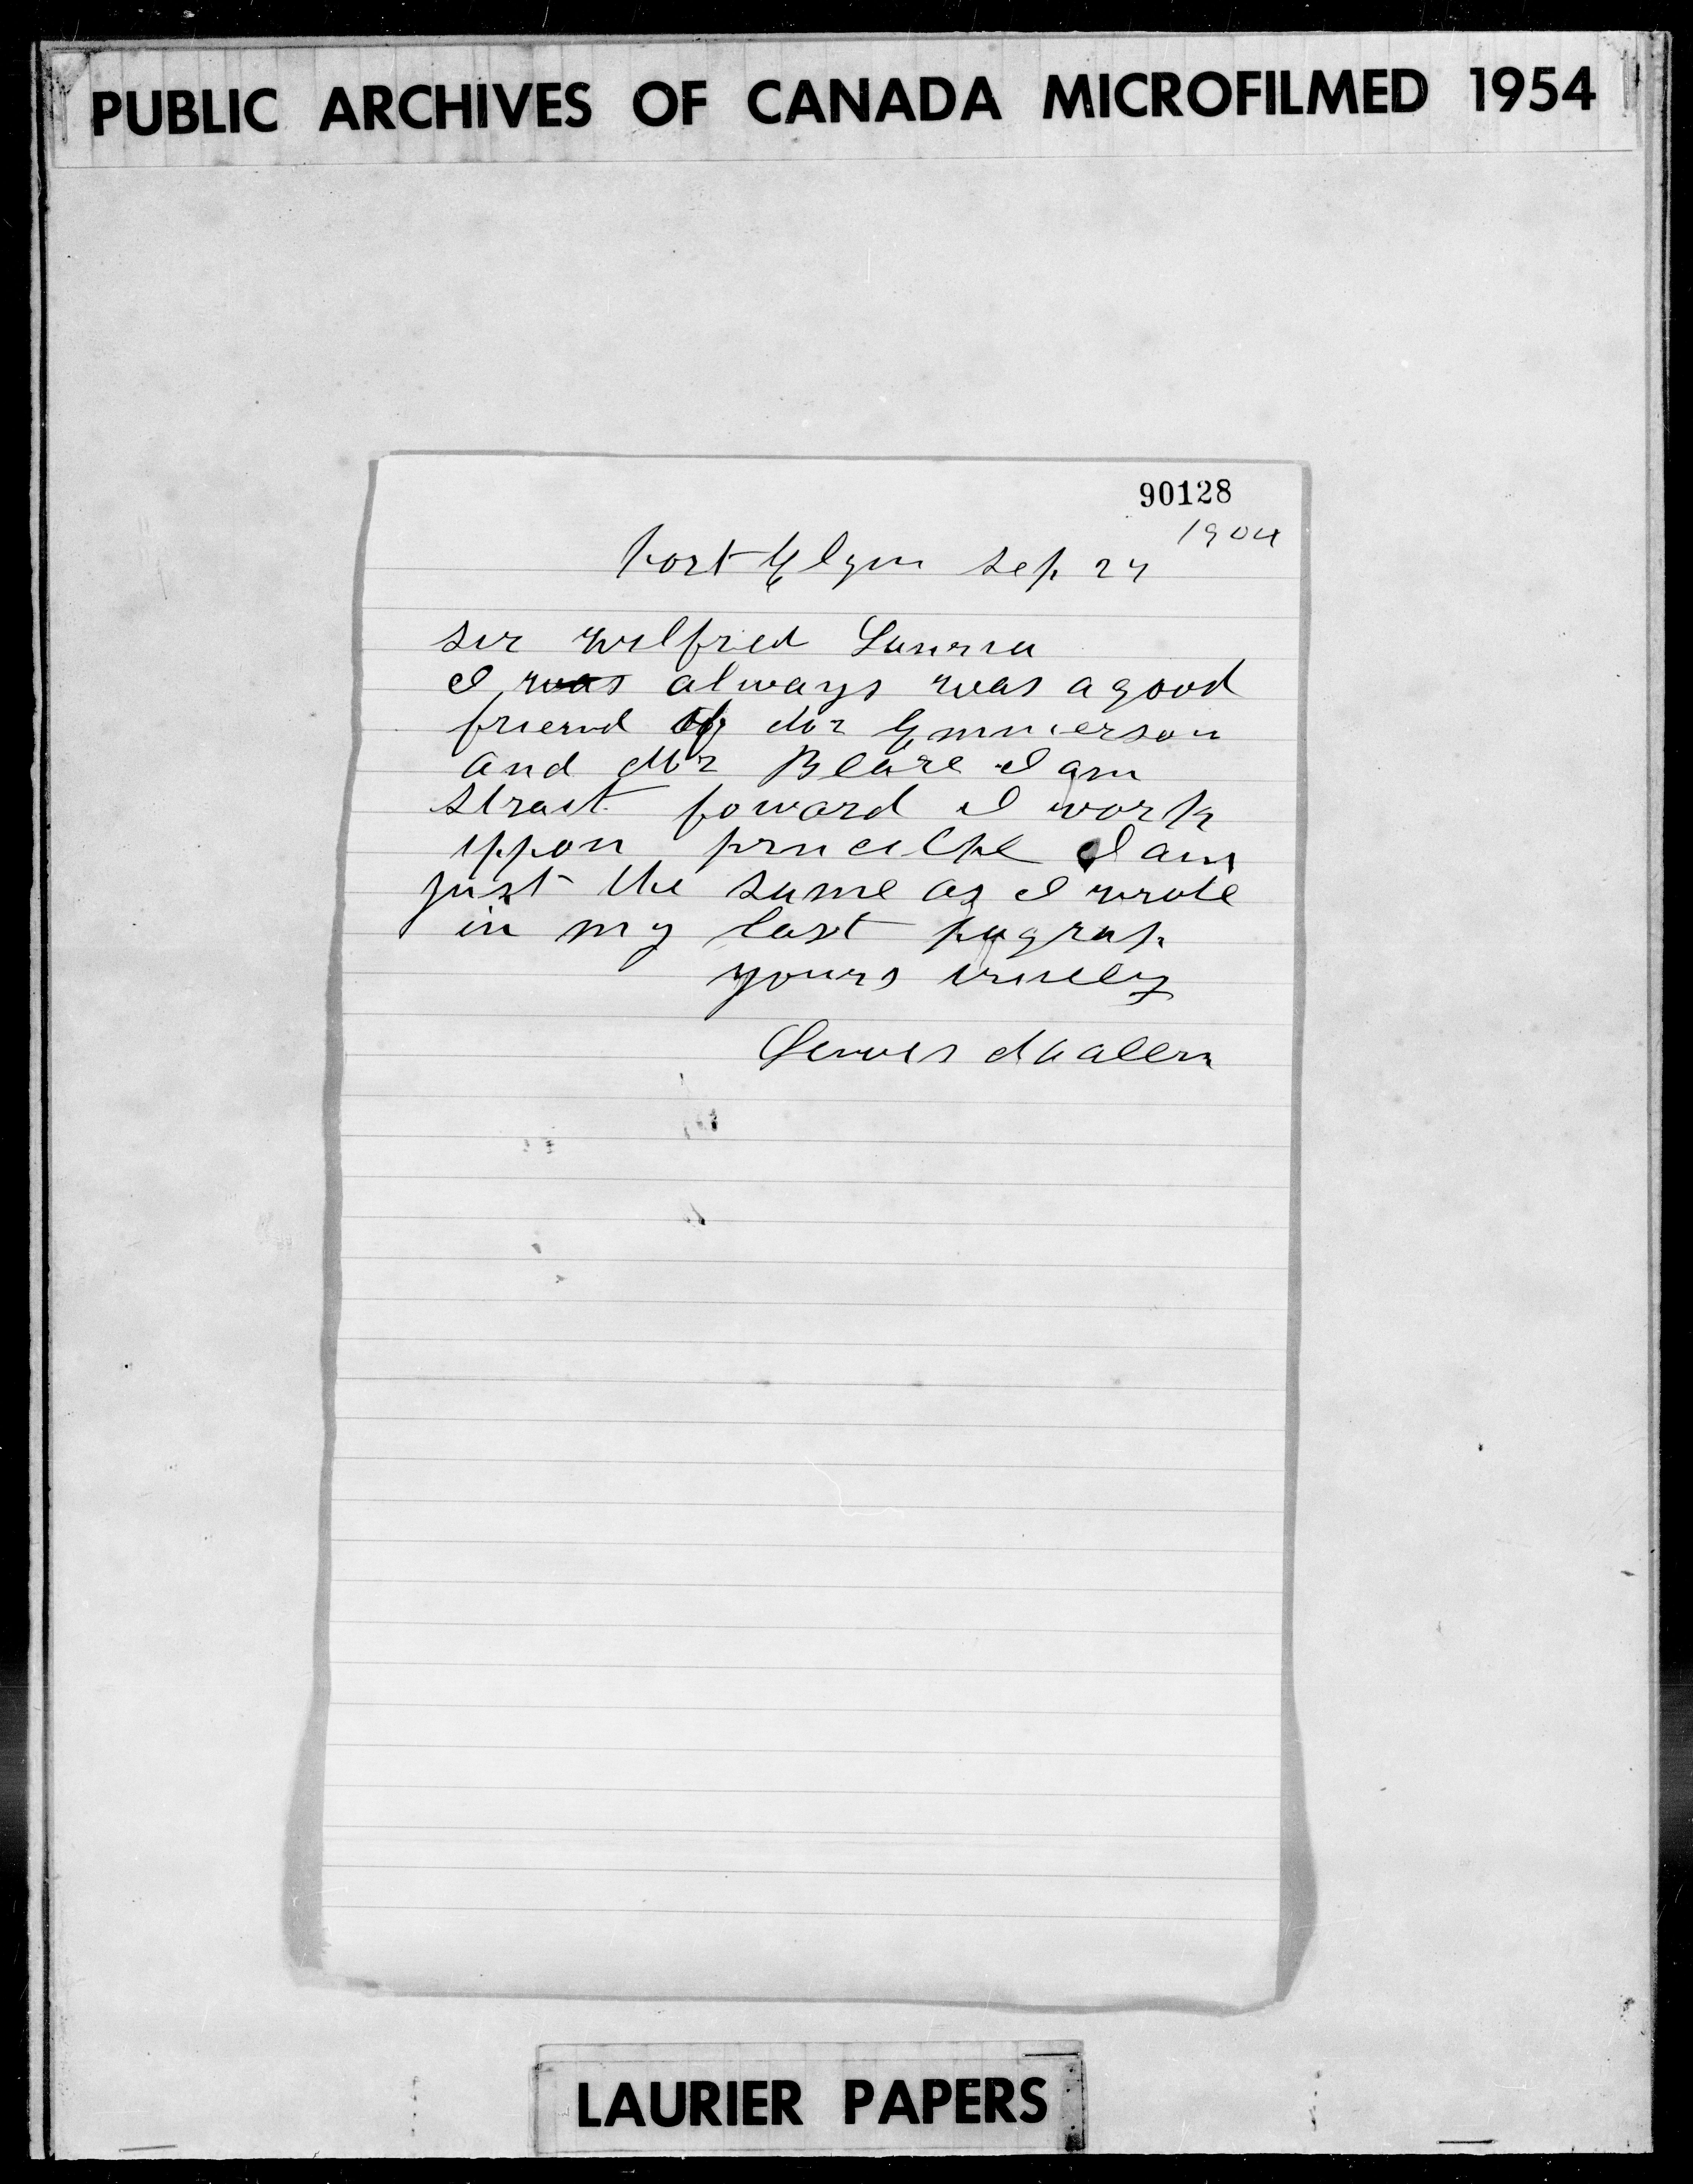 PUBLIC ARCHIVES OF CANADA MICROFILMED 1954
90128
1904
Port Elgin Sep 24
Sir Wilfred Laurier
I was always was a good
friend of Mr Emmerson
and Mr Blare I am
strait foward I work
uppon princilpe I am
just the same as I wrote
in my last pagrap
yours truely
LAURIER PAPERS